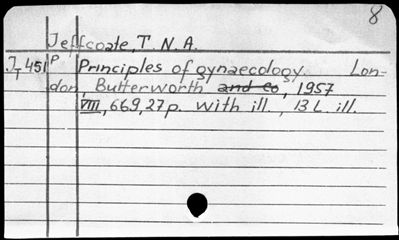 8
Jeffcoate, T. N. A.
J 451 p Principles of gynaecology. Lon-
T don, Butterworth and co, 1957
VIII, 669, 27 p. with ill., 13 L. ill.